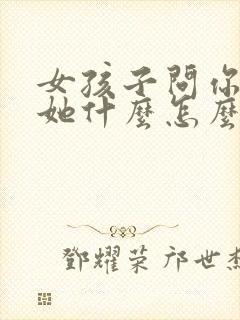 女孩子問你
她什麼怎麼
鄧耀荣 邝世杰